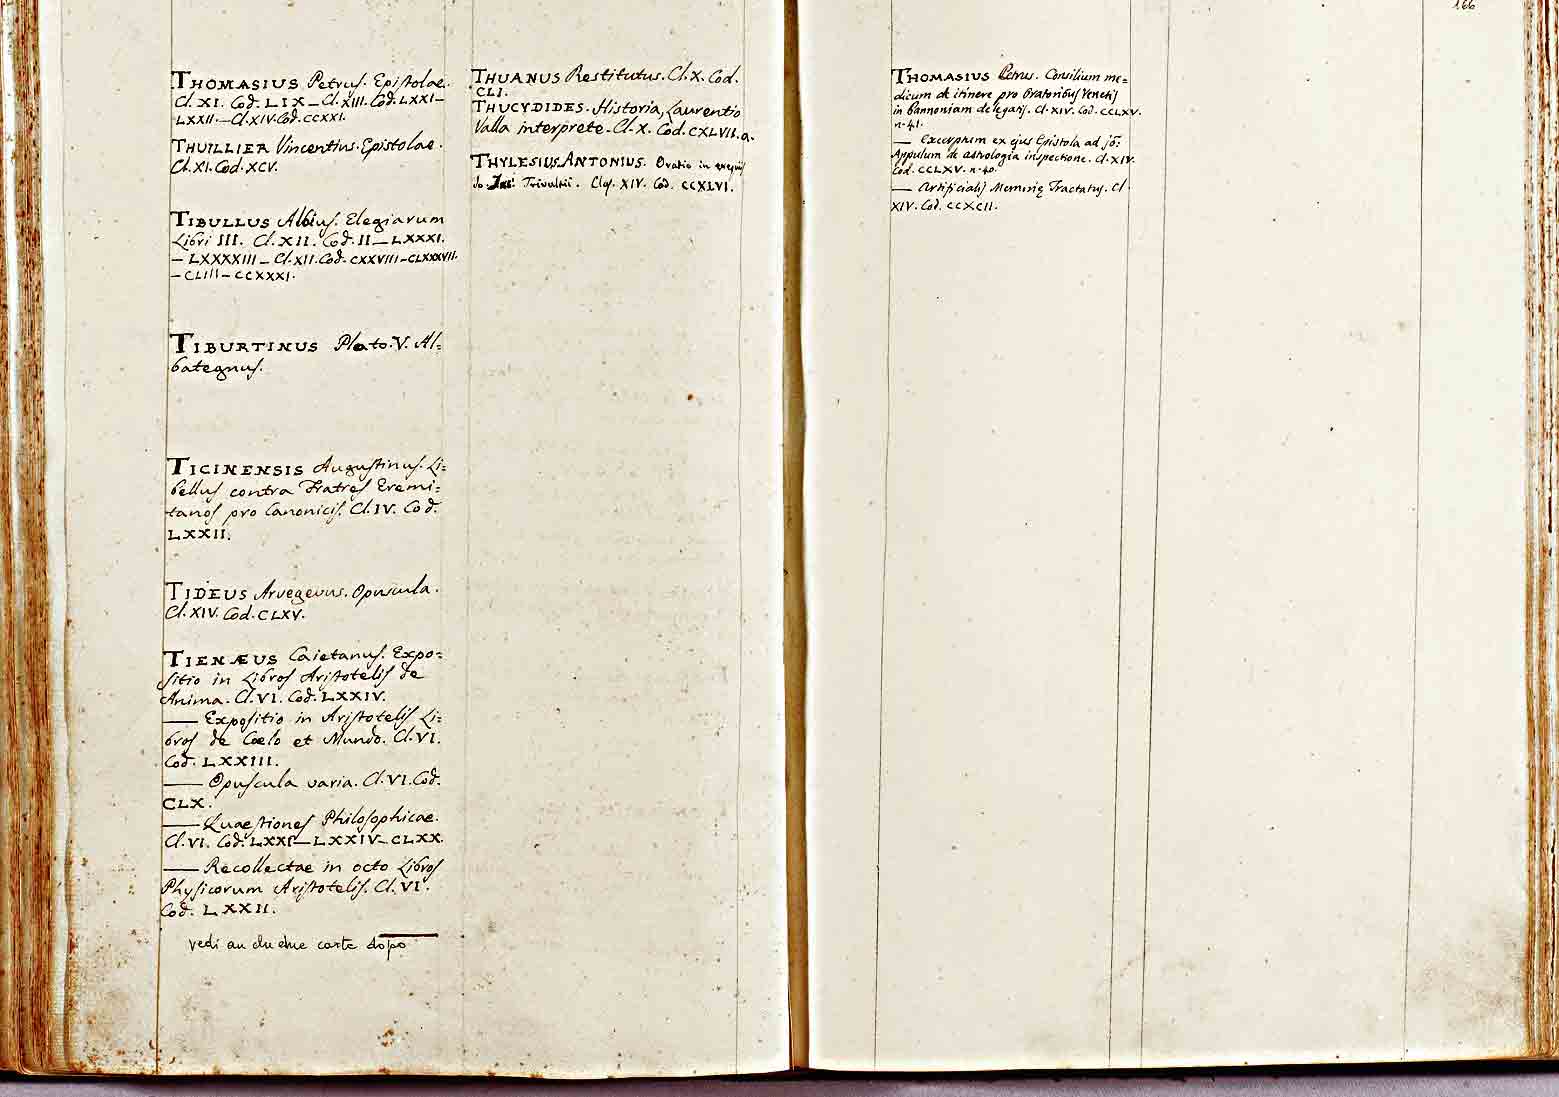 THOMASIUS Petrus. Epistolae.
Cl. XI. Cod. LIX — Cl. XIII. Cod. LXXI —
LXXII. — Cl. XIV. Cod. CCXXI.
THUILLIER Vincentius. Epistolae.
Cl. XI. Cod. XCV.
TIBULLUS Albius. Elegiarum
Libri III. Cl. XII. Cod. II — LXXXI.
— LXXXXIII — Cl. XII. Cod. CXXVIII — CLXXXVII.
— CLIII — CCXXXI.
TIBURTINUS Plato. V. Al=
bategnus.
TICINENSIS Augustinus. Li=
bellus contra Fratres Eremi=
tanos pro Canonicis. Cl. IV. Cod.
LXXII.
TIDEUS Opuscula.
Cl. XIV. Cod. CLXV.
TIENÆUS Caietanus. Expo=
sitio in Libros Aristotelis de
Anima. Cl. VI. Cod. LXXIV.
— Expositio in Aristotelis Li=
bros de Cœlo et Mundo. Cl. VI.
Cod. LXXIII.
— Opuscula varia. Cl. VI. Cod.
CLX.
— Quaestiones Philosophicae.
Cl. VI. Cod. LXXI — LXXIV — CLXX.
— Recollectae in octo Libros
Physicorum Aristotelis. Cl. VI.
Cod. LXXII.
vedi carte dopo
THUANUS Restitutus. Cl. X. Cod.
CLI.
THUCYDIDES. Historia, Laurentio
Valla interprete. Cl. X. Cod. CXLVII. a.
THYLESIUS ANTONIUS. Oratio in
Trivultii. Clas. XIV. Cod. CCXLVI.
166
THOMASIUS Petrus. Consilium me=
dicum de itinere pro Oratoribus Venetis
in Pannoniam delegatis. Cl. XIV. Cod. CCLXV.
n. 41.
— Excerptum ex ejus Epistola ad Jo:
Appulum de astrologia inspectione. Cl. XIV.
Cod. CCLXV. n. 40.
— Artificialis Memorię Tractatus. Cl.
XIV. Cod. CCXCII.